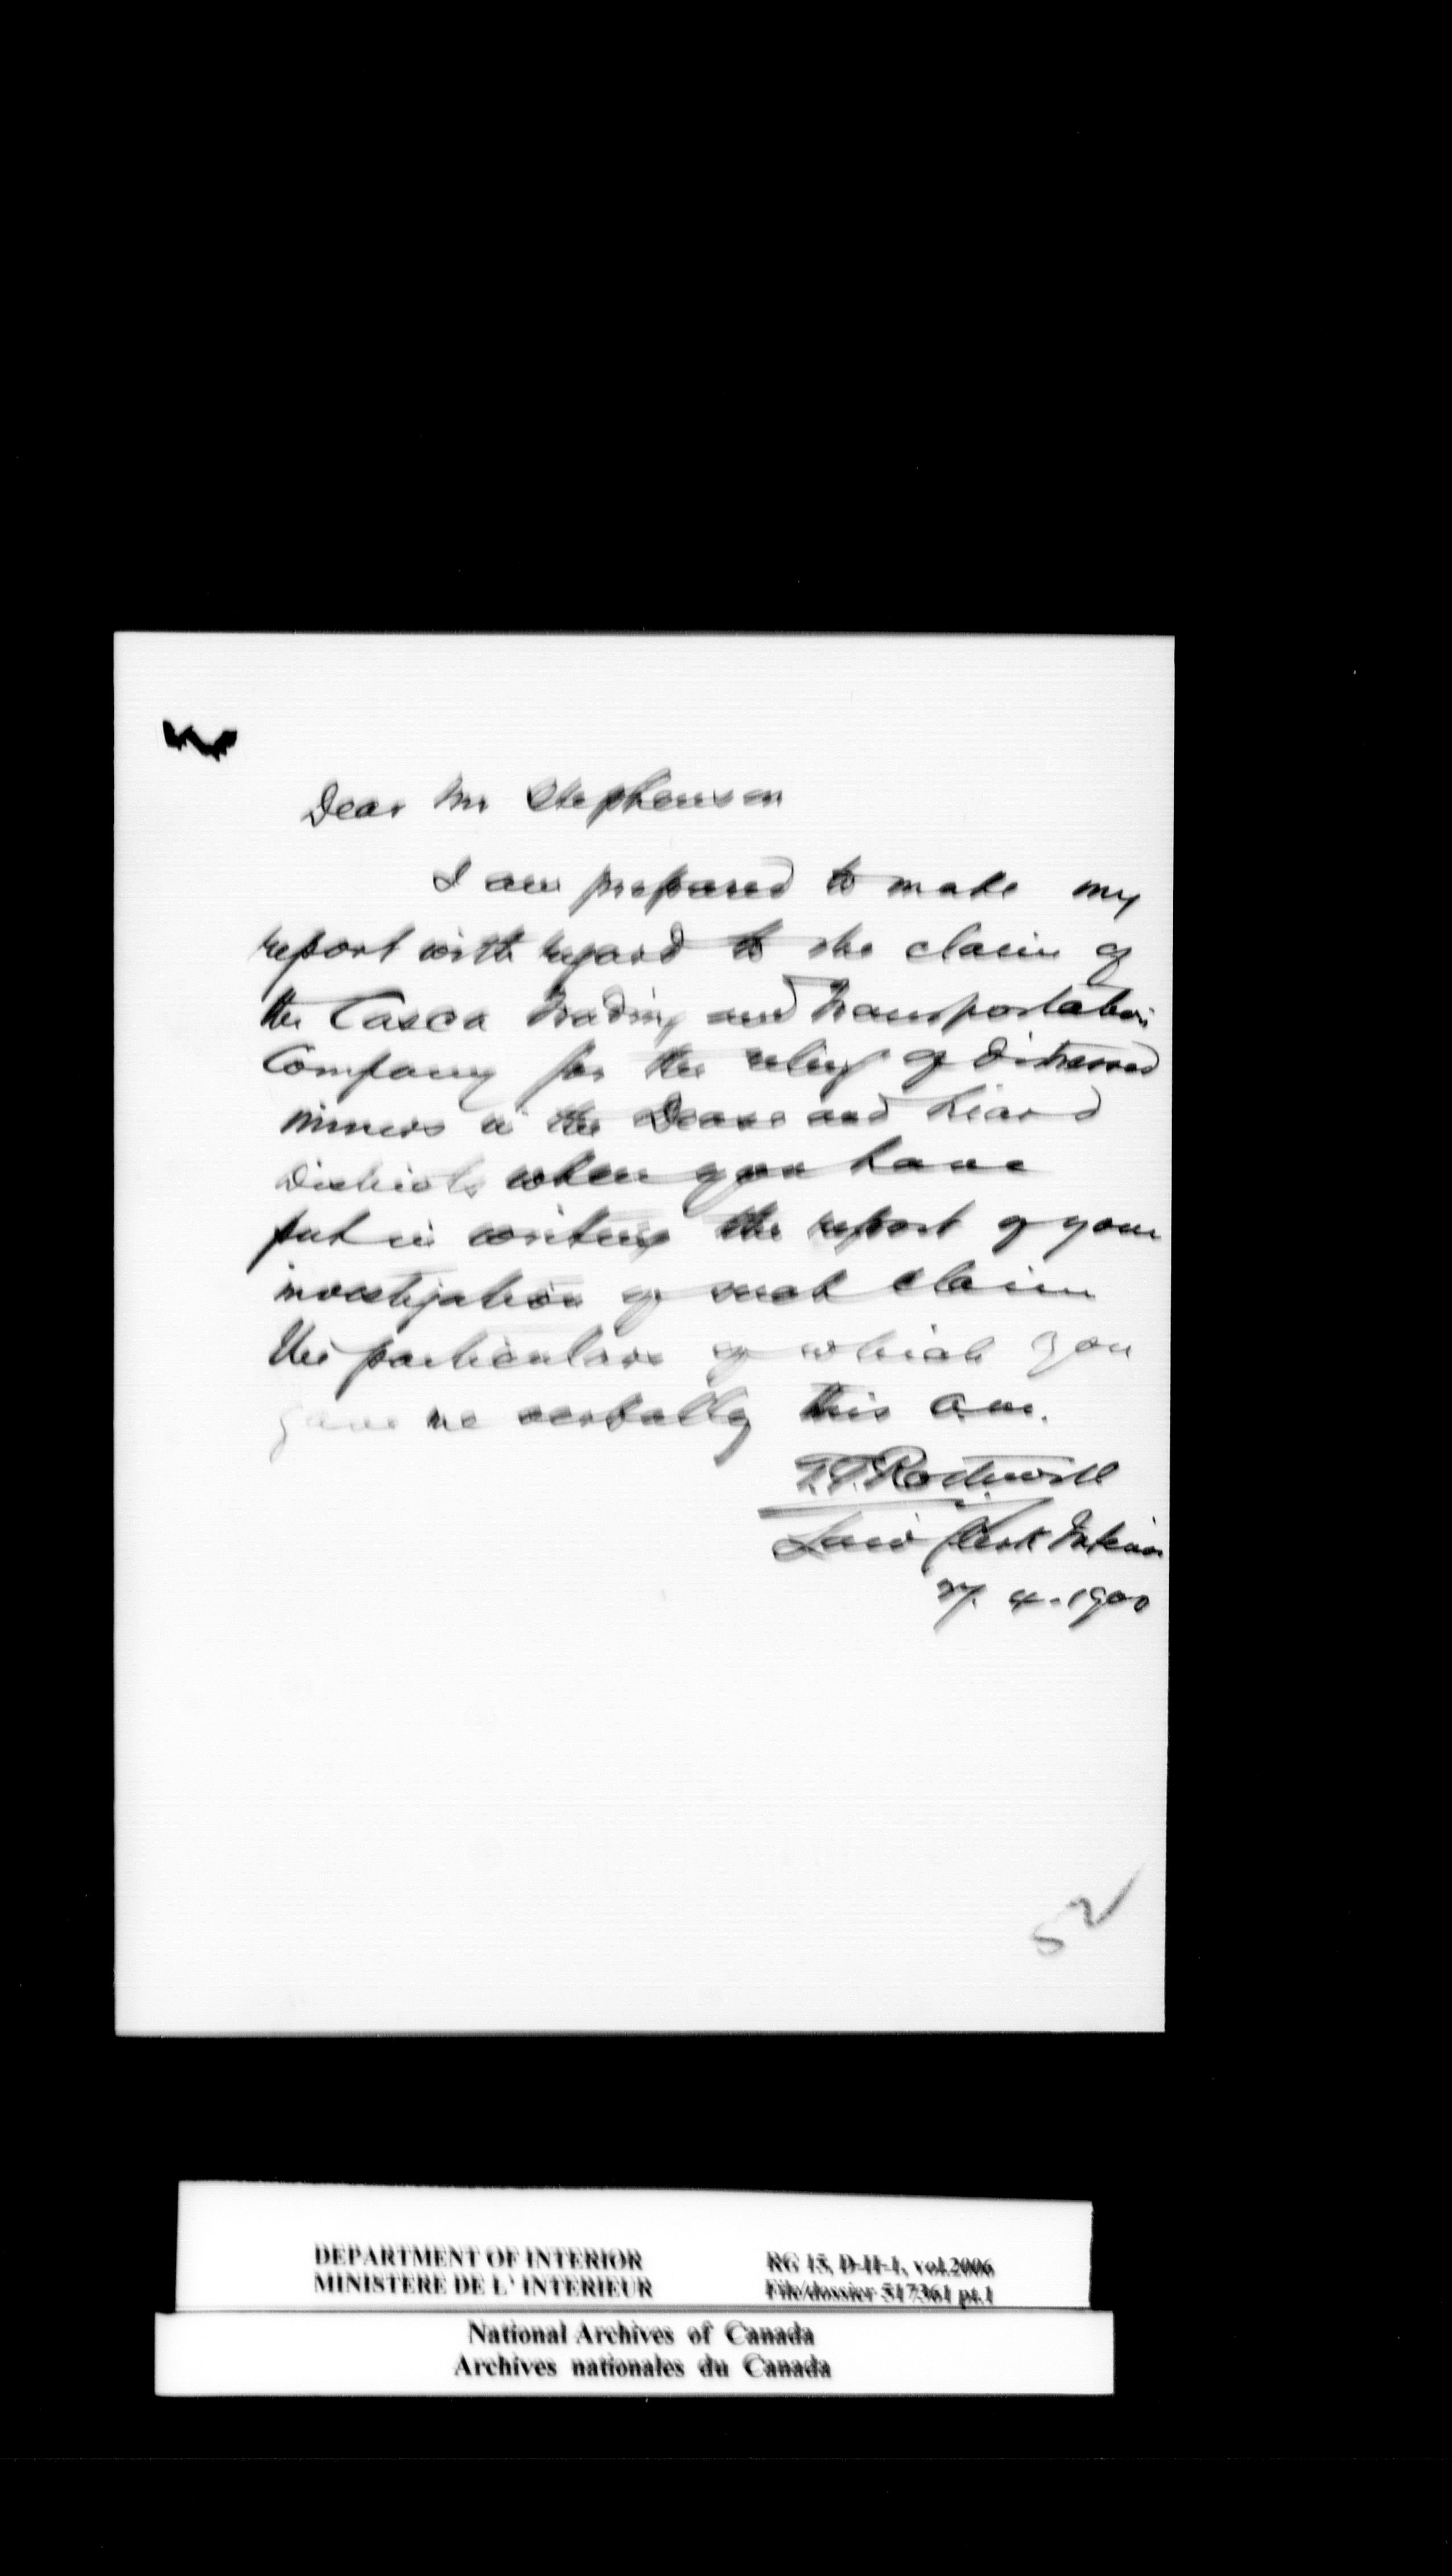 Dear Mr Stephenson
I am prepared to make my
report with regard to the claim of
the Casca Trading and Transportation
Company for the relief of distressed
miners in the Dease and Liard
Districts when you have
put in writing the report of your
investigation of such claim
the particulars of which you
gave me verbally this a.m.
Law Clerk Interior
27. 4. 1900
52
DEPARTMENT OF INTERIOR
MINISTERE DE L' INTERIEUR
RG 15, D-II-1, vol.2006
File/dossier 517361 pt.1
National Archives of Canada
Archives nationales du Canada